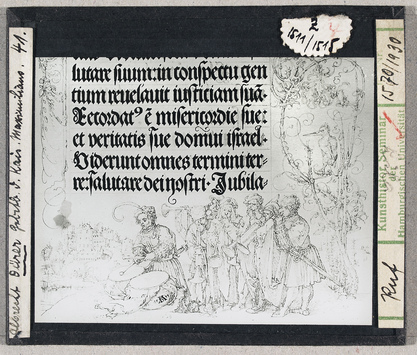 2
1511/1515
lutare suum: in conspectu gen
tium reuelauit iusticiam suā.
Recordatꝰ ē misericordie sue:
et veritatis sue domui israel.
Viderunt omnes termini ter-
re: salutare dei nostri. Jubila-
Albrecht Dürer Gebetb. d. Kais. Maximilians. 41.
Kunstgesch. Seminar
der
Hamburgischen Universität
1570/1930